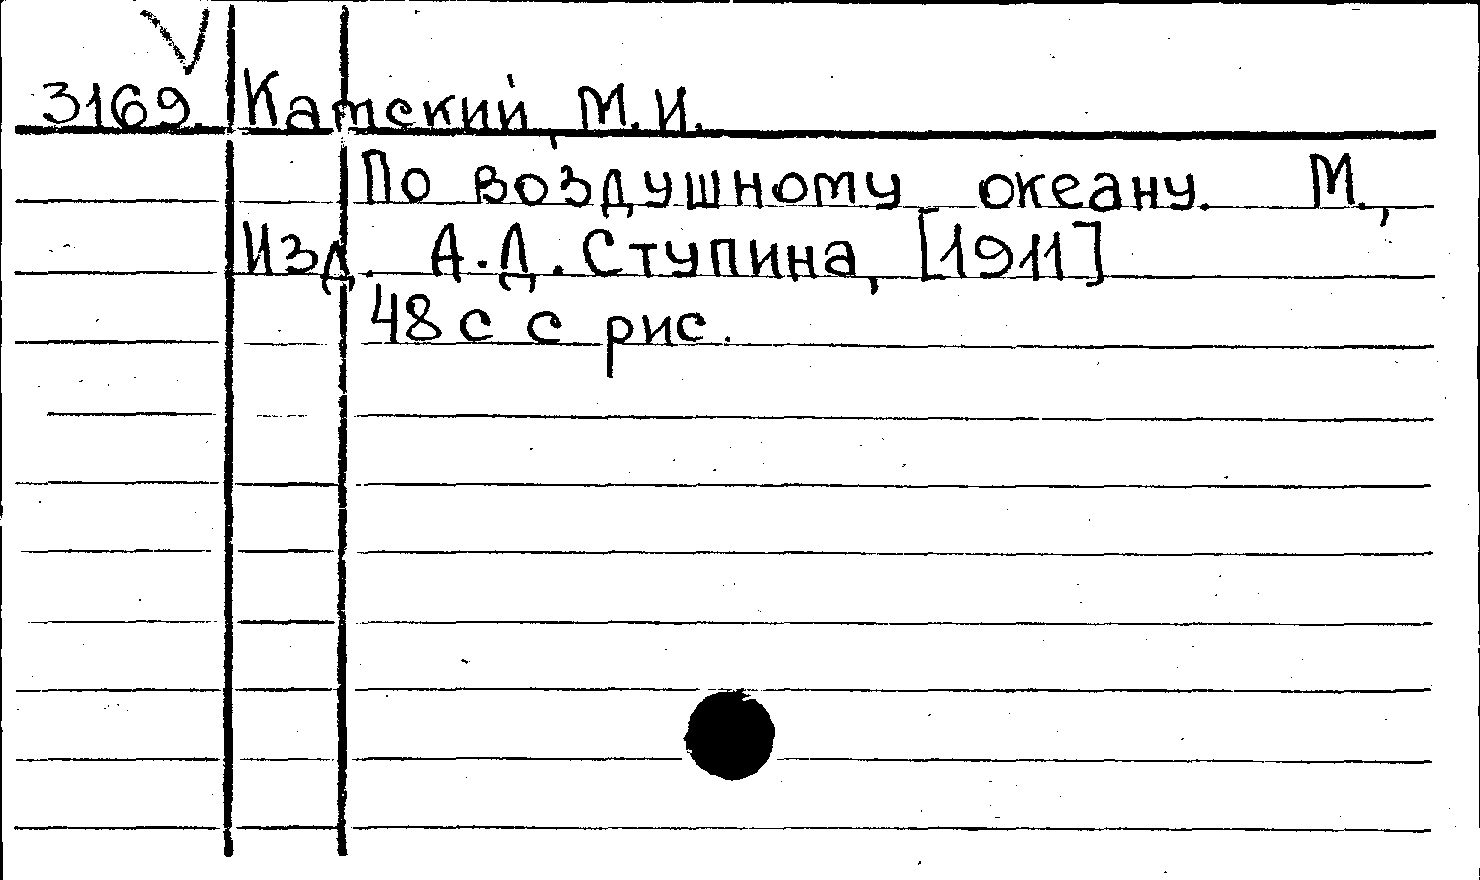 3169. Катский, М.И.
По воздушному океану. М.,
Изд. А.Д. Ступина, [1911]
48 с с рис.